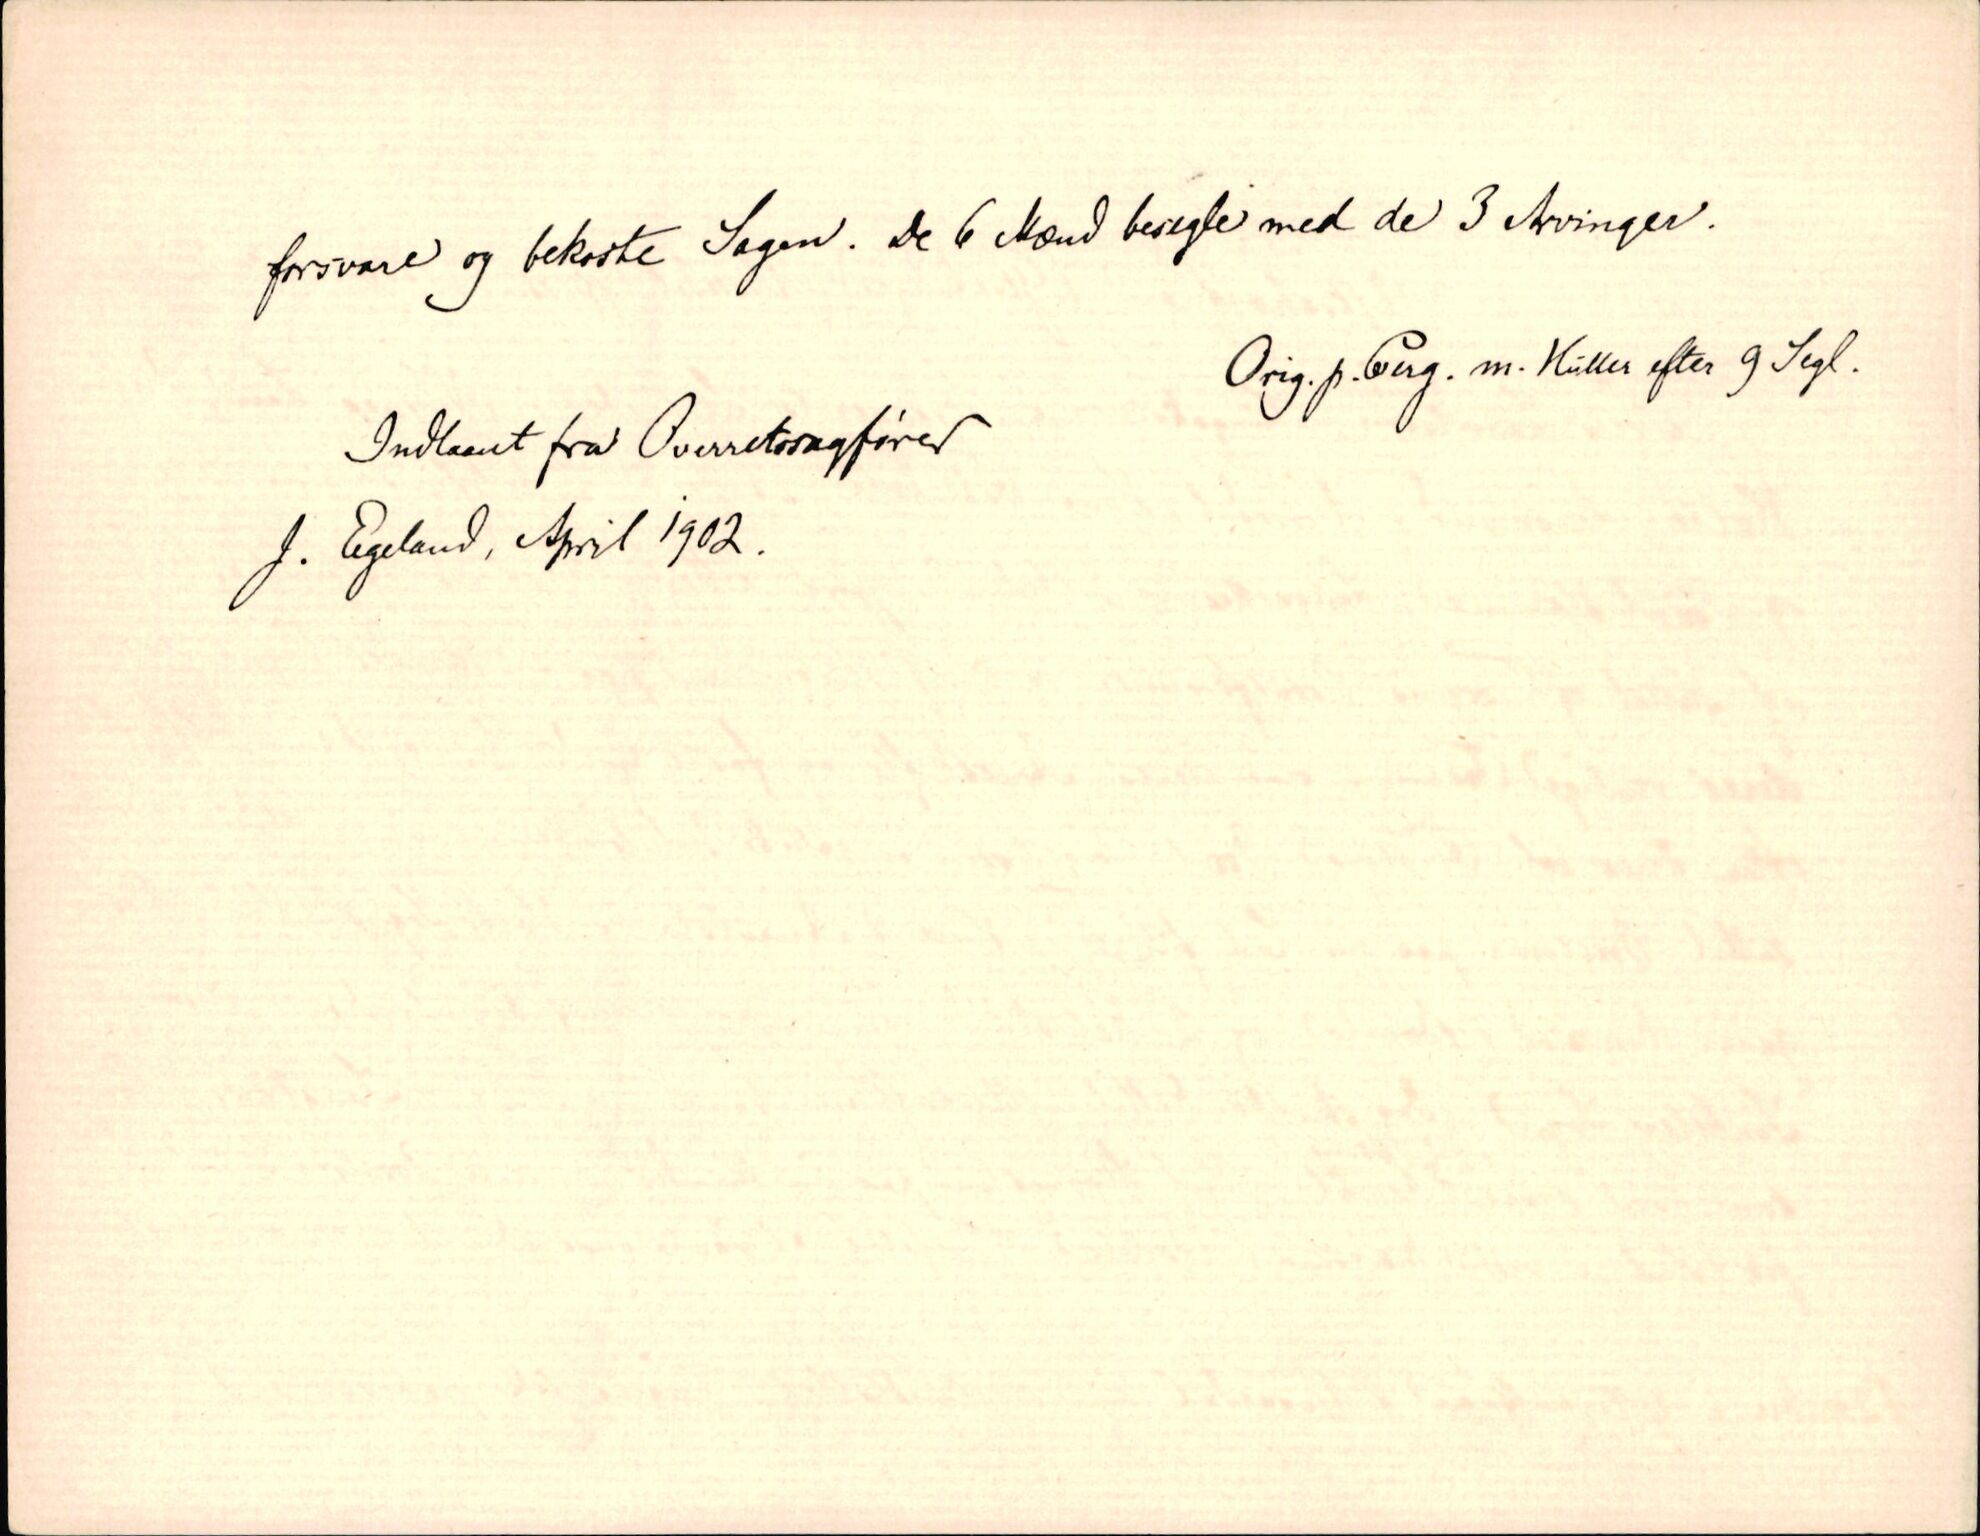 forsvare og bekoste Sagen. De 6 Mænd besegle med de 3 Arvinger.
Orig. p. Perg. m. Huller efter 9 Segl.
Indlaant fra Overretssagfører
J. Egeland, April 1902.